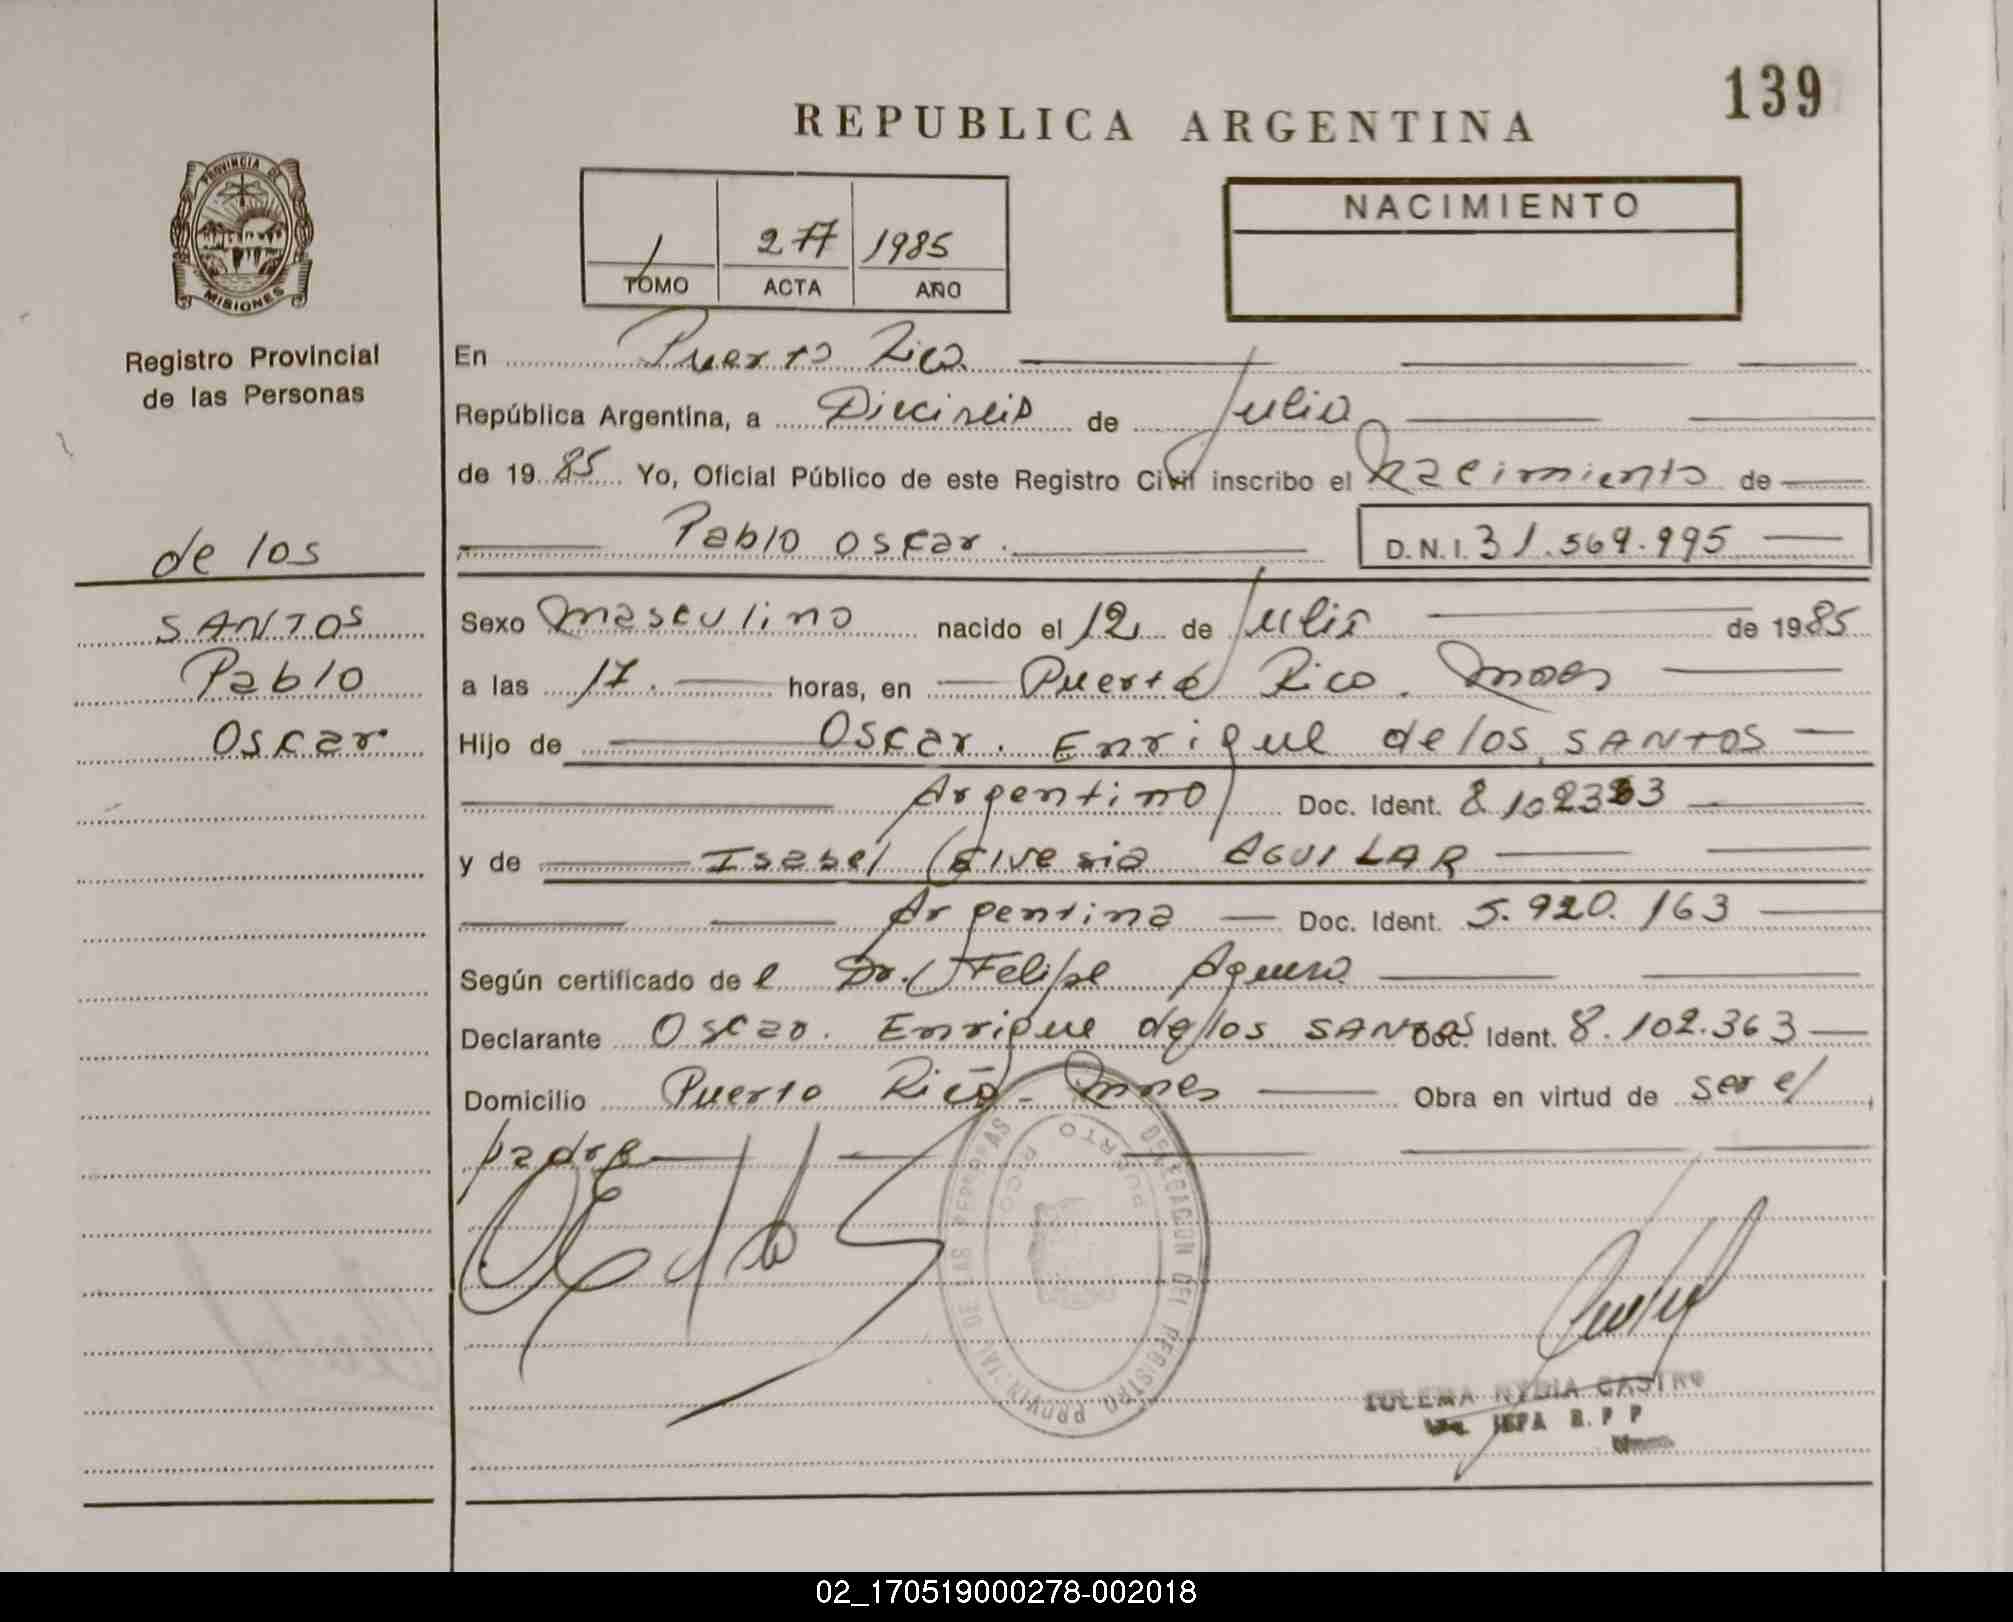 139
REPUBLICA ARGENTINA
PROVINCIA DE
MISIONES
Registro Provincial
de las Personas
de los
SANTOS
Pablo
Oscar
1 277 1985
TOMO ACTA AÑO
NACIMIENTO
En Puerto Rico
República Argentina, a Dieciseis de Julio
de 1985 Yo, Oficial Público de este Registro Civil inscribo el Nacimiento de
Pablo Oscar. D.N.I. 31.569.995
Sexo masculino nacido el 12 de Julio de 1985
a las 17. horas, en Puerto Rico. Mnes
Hijo de Oscar. Enrique de los SANTOS
Argentino Doc. Ident.
y de Isabel AGUILAR
Argentina Doc. Ident. 5.920.163
Según certificado de l Dr. Felipe Aguero
Declarante Oscar. Enrique de los SANTOS Doc. Ident. 8.102.363
Domicilio Puerto Rico - Mnes Obra en virtud de ser el
padre
DELEGACION DEL REGISTRO PROVINCIAL DE LAS PERSONAS
PUERTO RICO
ZULEMA NYDIA CASTRO
JEFA R. P P
02_170519000278-002018